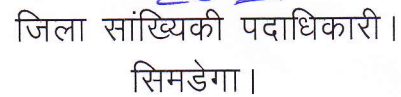 जिला सांख्यिकी पदाधिकारी।
सिमडेगा।